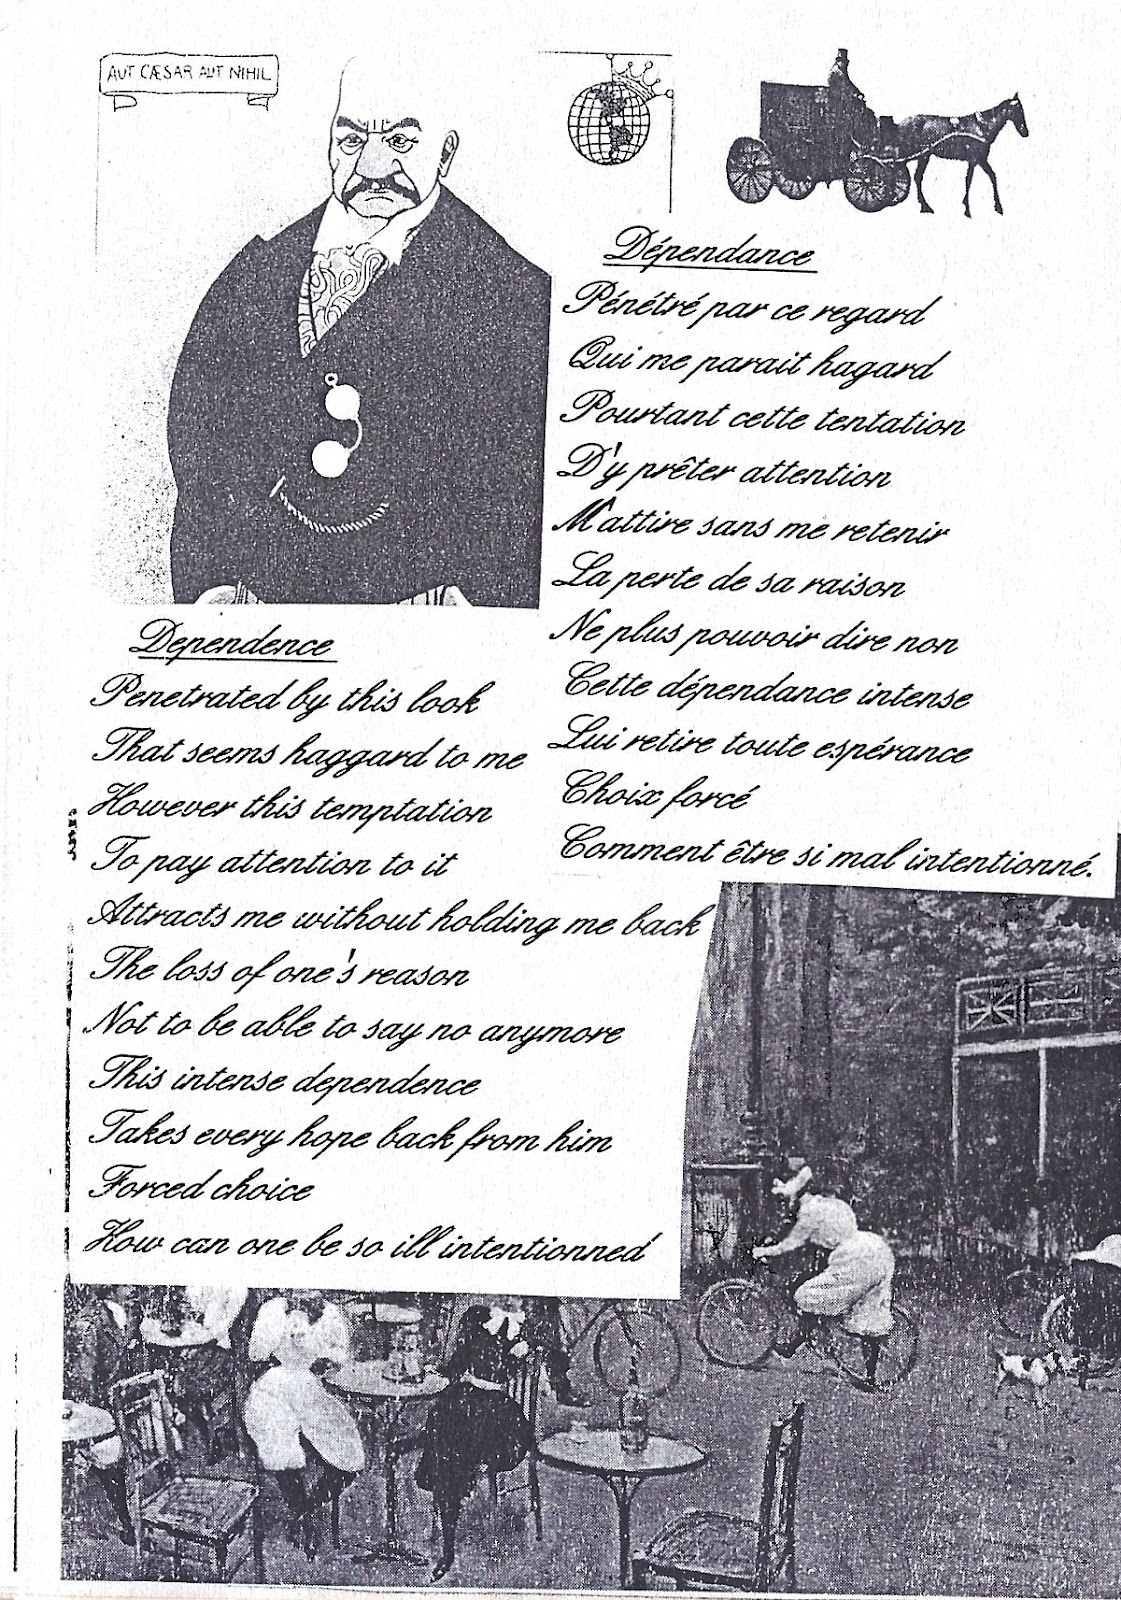 AUT CÆSAR AUT NIHIL
Dépendance
Pénétré par ce regard
Qui me parait hagard
Pourtant cette tentation
D'y prêter attention
M'attire sans me retenir
La perte de sa raison
Ne plus pouvoir dire non
Cette dépendance intense
Lui retire toute espérance
Choix forcé
Comment être si mal intentionné.
Dependence
Penetrated by this look
That seems haggard to me
However this temptation
To pay attention to it
Attracts me without holding me back
The loss of one's reason
Not to be able to say no anymore
This intense dependence
Takes every hope back from him
Forced choice
How can one be so ill intentionned